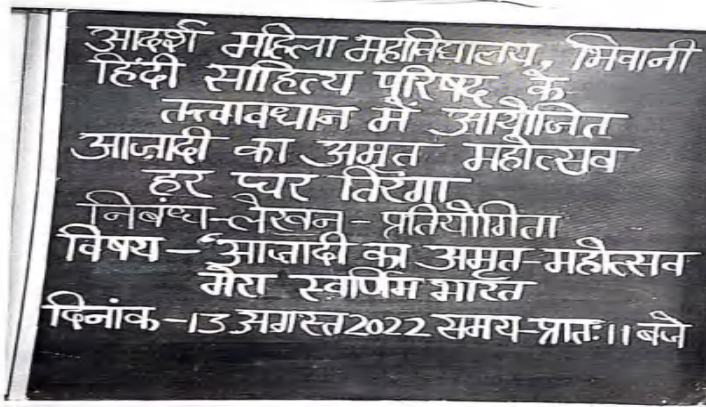 आदर्श महिला महाविद्यालय, भिवानी
हिंदी साहित्य परिषद के
तत्वावधान में आयोजित
आजादी का अमृत महोत्सव
हर घर तिरंगा
निबंध-लेखन-प्रतियोगिता
विषय-'आजादी का अमृत-महोत्सव
मेरा स्वर्णिम भारत
दिनांक-13 अगस्त 2022 समय-प्रातः 11 बजे